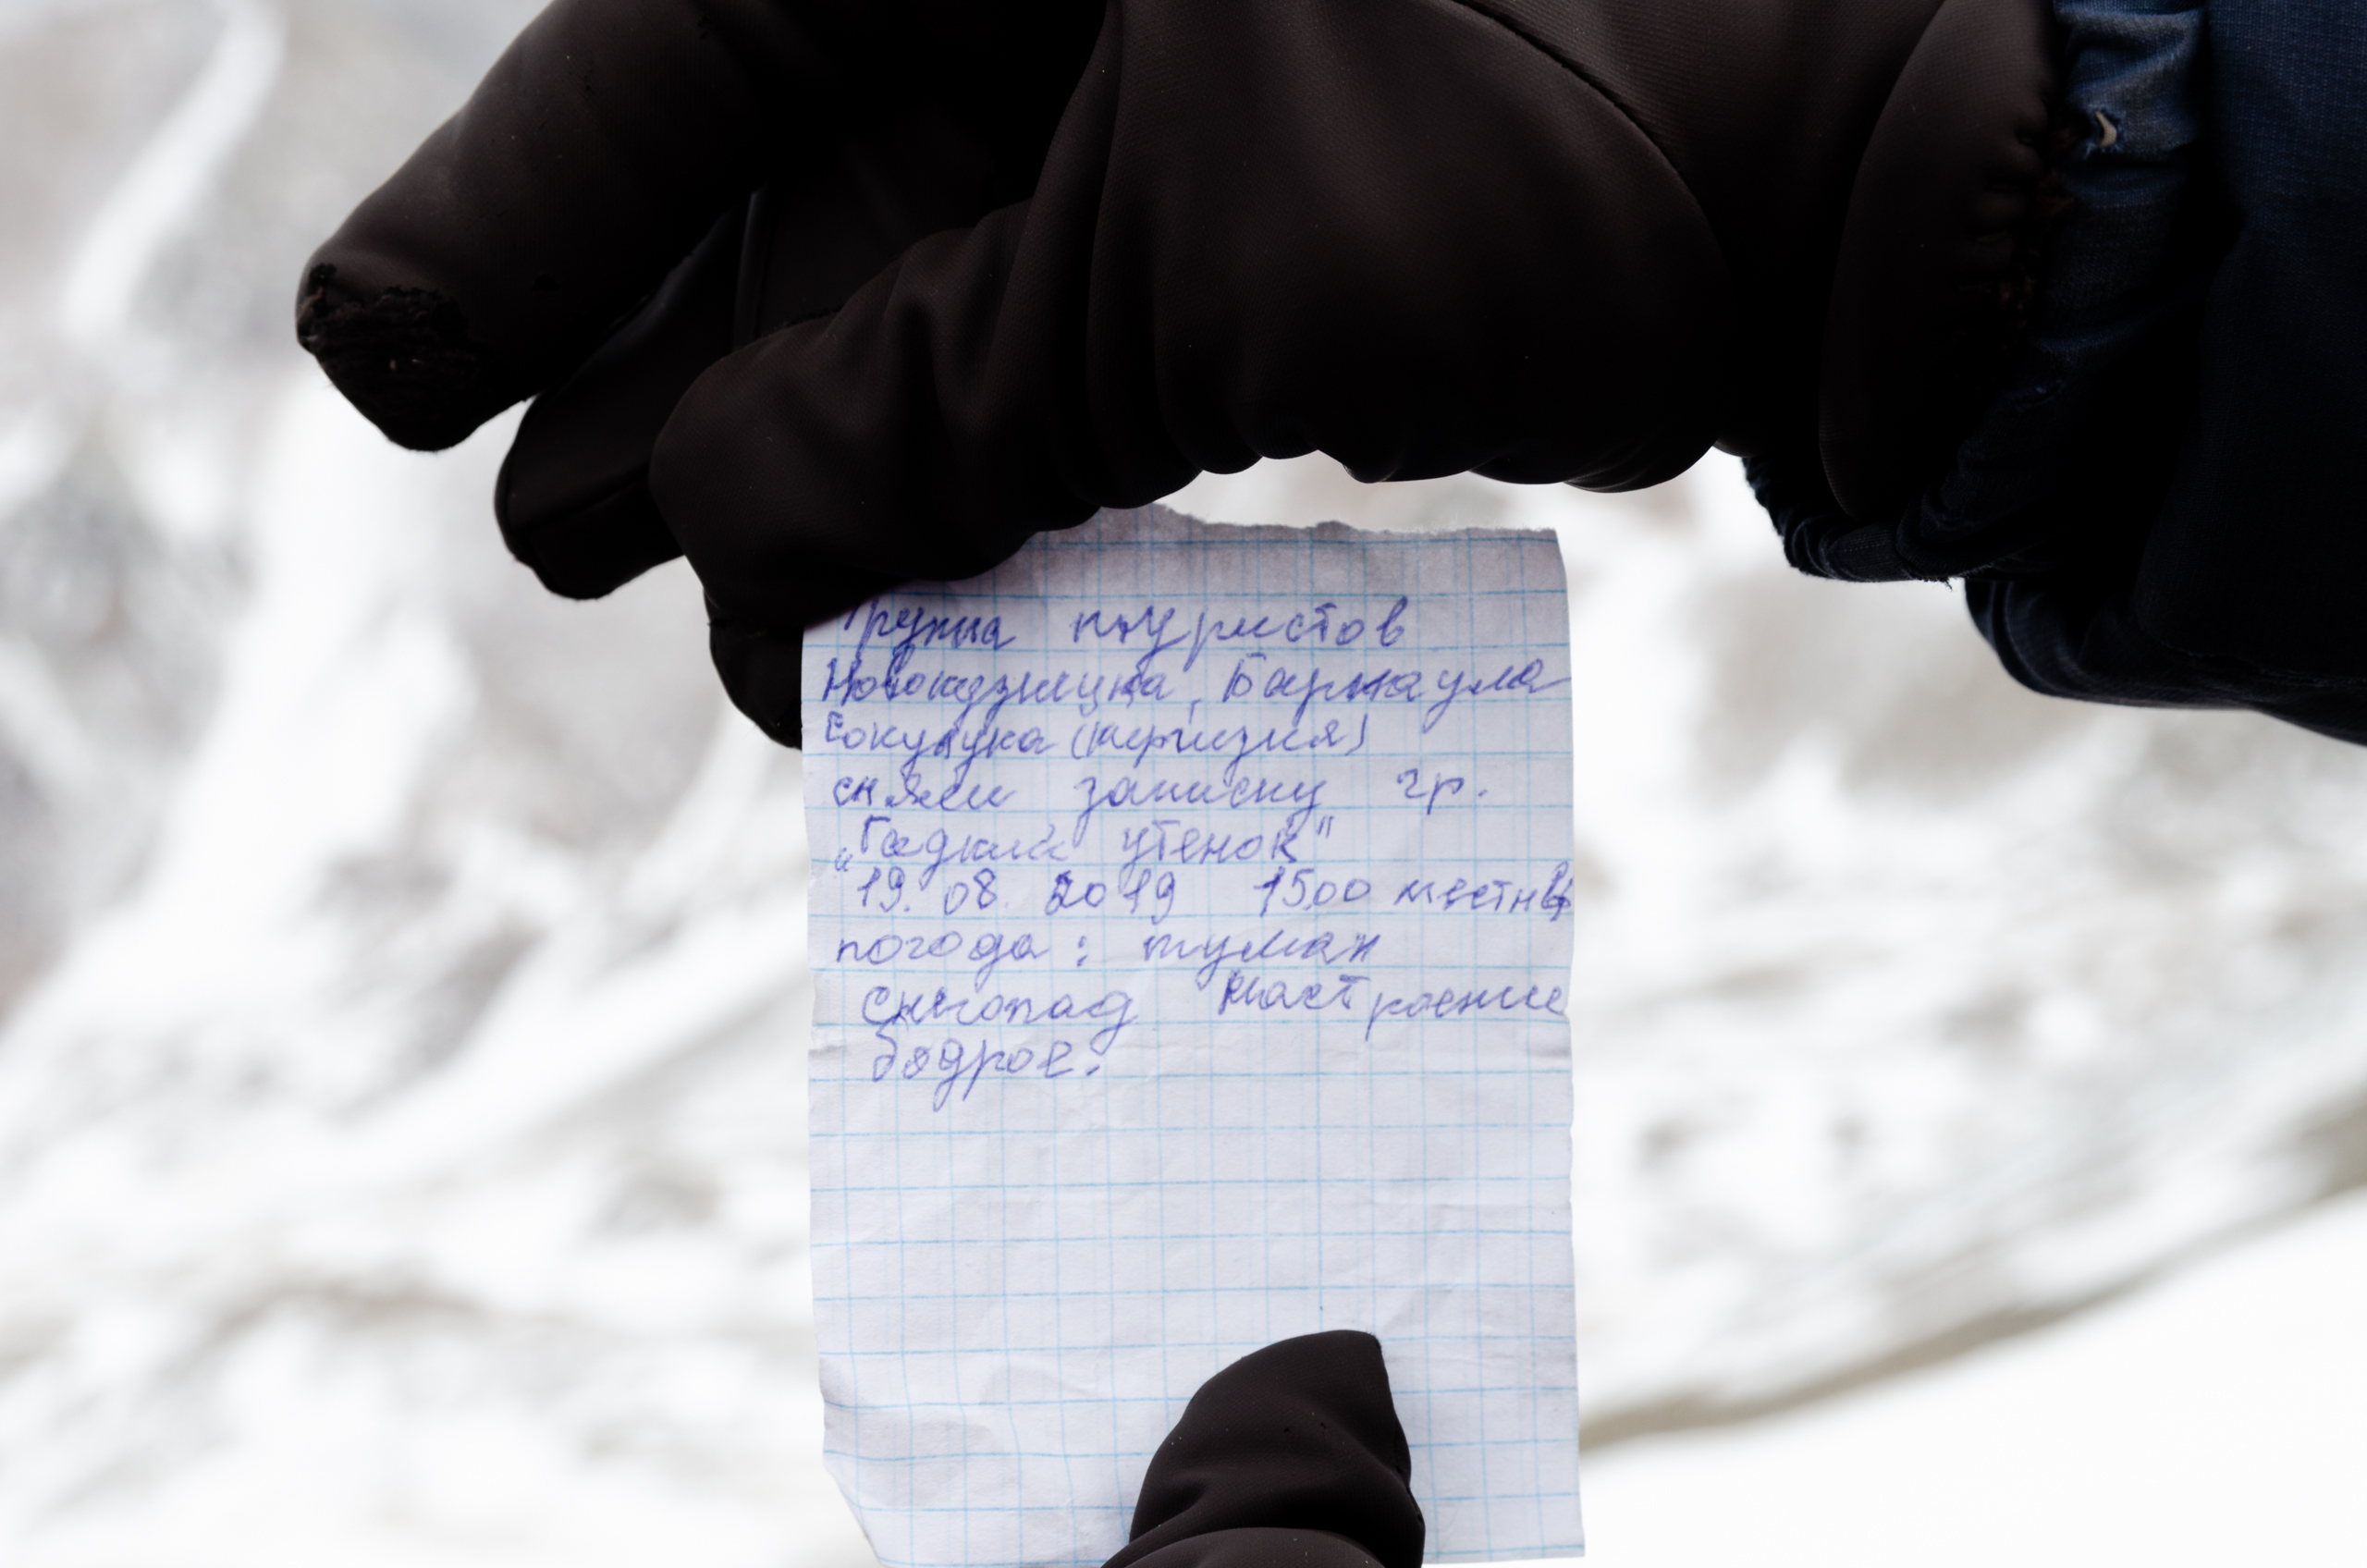 Группа туристов
Новокузнецка, Барнаула
Сокулука (Киргизия)
сняли записку гр.
"Гадкий утенок"
19. 08. 2019 1500 местн
погода: туман
снегопад настроение
бодрое.